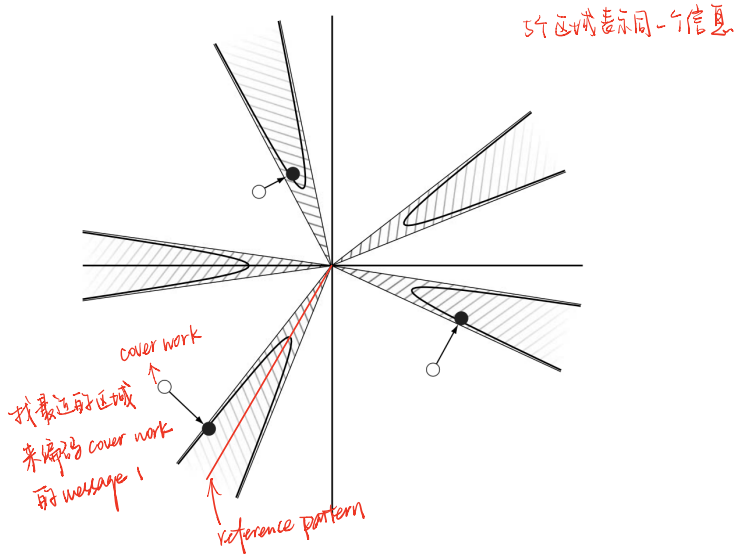 5个区域表示同一个信息
cover work
找最近的区域
来编码cover work
的message 1
reference pattern